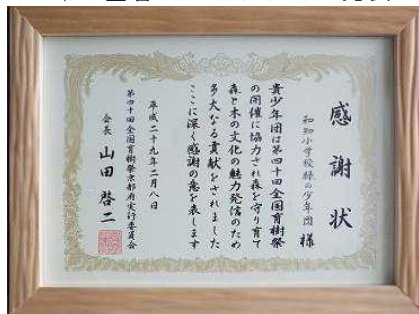 感謝状
和知小学校緑の少年団 様
貴少年団は第四十回全国育樹祭
の開催に協力され森を守り育て
森と木の文化の魅力発信のため
多大なる貢献をされました
ここに深く感謝の意を表します
平成二十九年二月八日
第四十回全国育樹祭京都府実行委員会
会長 山田啓二